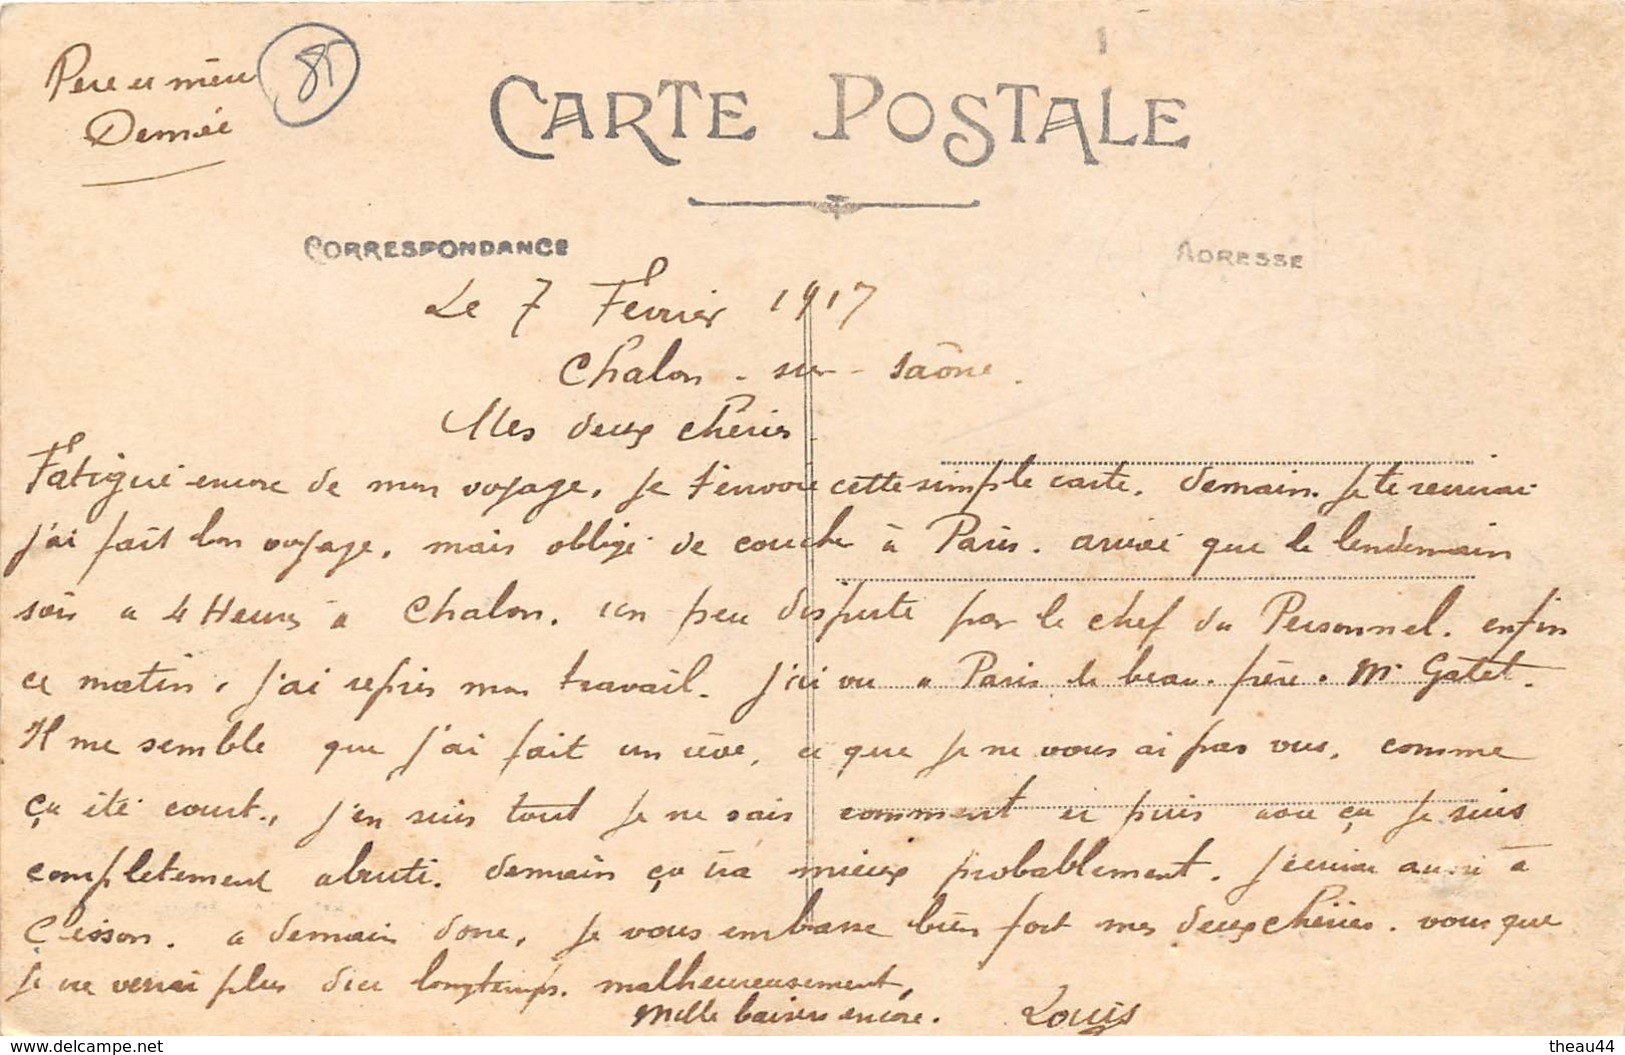 Père et mère
85
CARTE POSTALE
CORRESPONDANCE
ADRESSE
Le 7 Fevrier 1917
Chalon-sur-Saône.
Mes deux chéries
Fatigué encore de mon voyage, je t'envoie cette simple carte. demain. Je te recrirai
j'ai fait bon voyage, mais obligé de coucher à Paris. arrivé que le lendemain
soir à 4 Heures à Chalon. un peu disputé par le chef du Personnel. enfin
ce matin, j'ai repris mon travail. J'ai vu à Paris le beau-père. Mr Gatet.
Il me semble que j'ai fait un rêve, ce que je ne vous ai pas vus, comme
ça été court., j'en suis tout je ne sais comment et puis avec ça je suis
completement abruti. demain ça ira mieux probablement. J'ecrirai aussi à
Clisson. a demain donc, je vous embrasse bien fort mes deux chéries. vous que
je ne verrai plus d'ici longtemps. malheureusement,
Mille baisers encore. Louis
www.delcampe.net
theau44